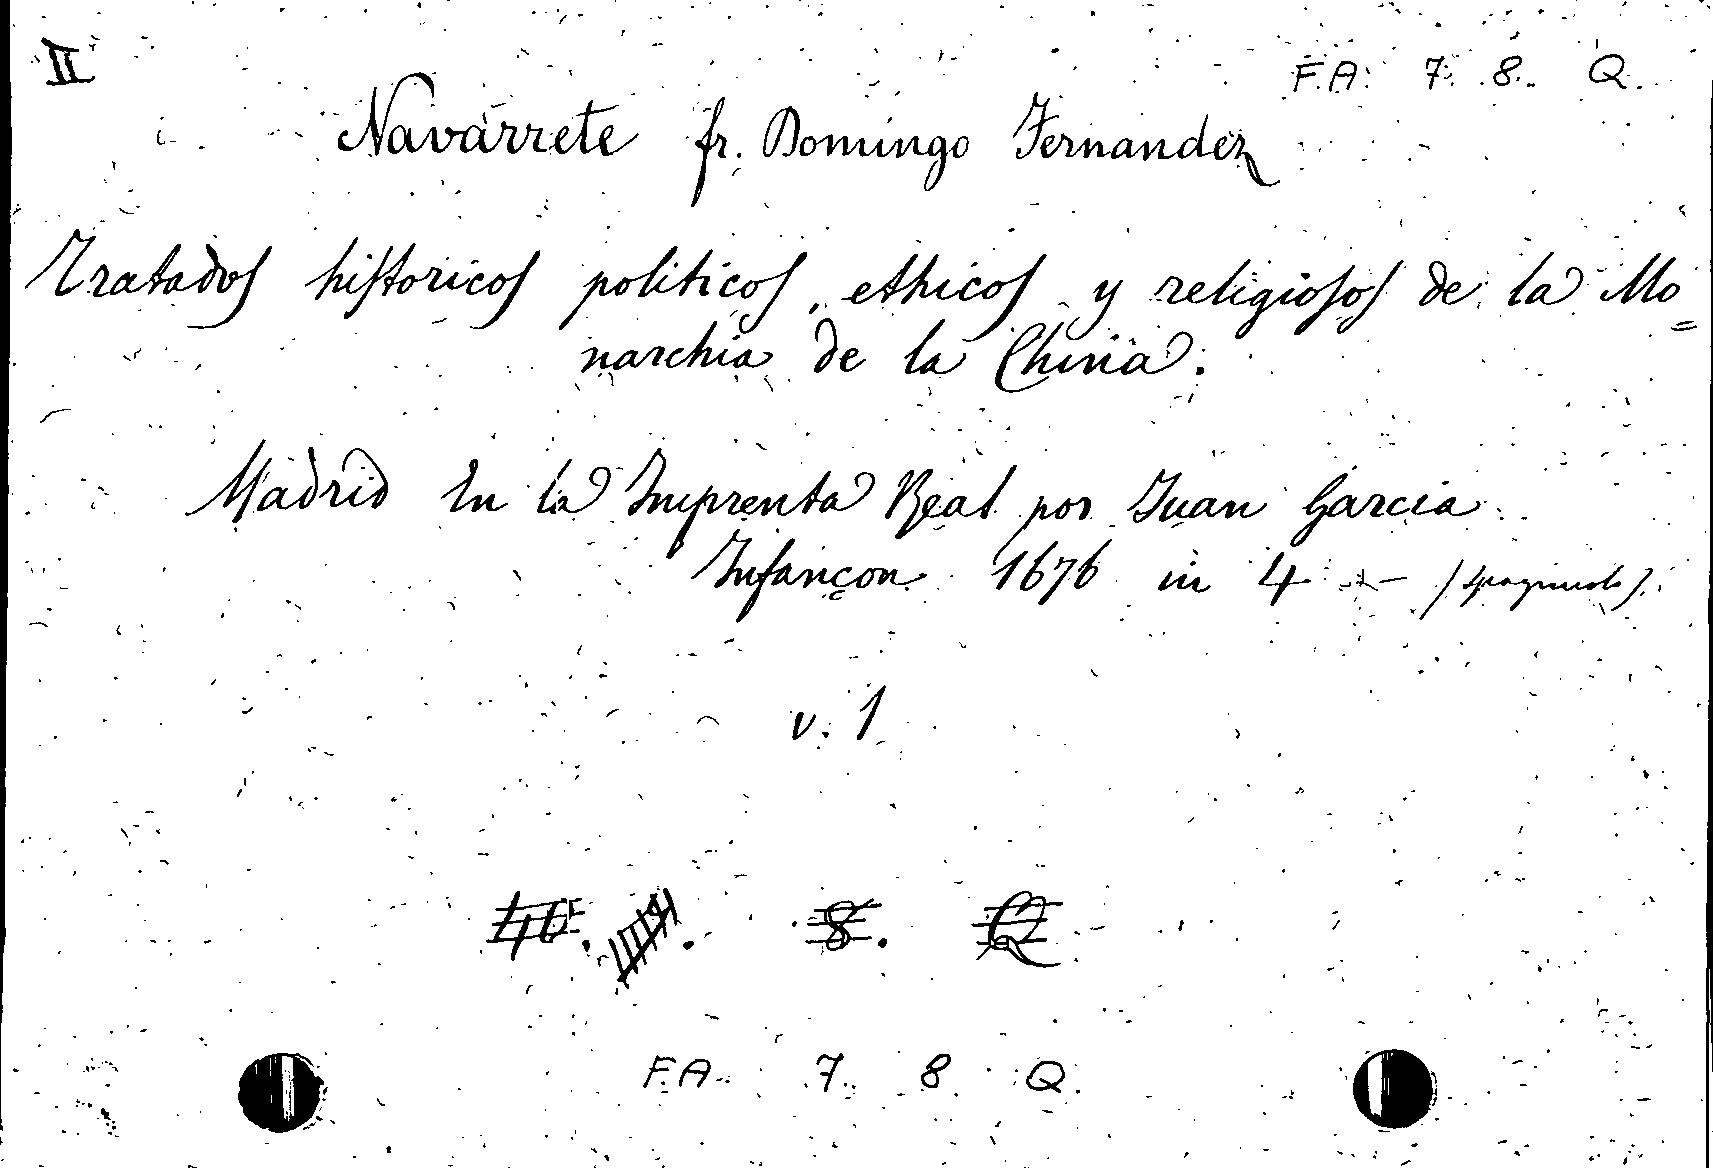 II
F.A. 7. 8. Q.
Navarrete fr. Domingo Fernandez
Tratados historicos politicos, ethicos y religiosos de la Mo=
narchia de la China.
Madrid En la Imprenta Real por Juan Garcia
Infançon 1676 in 4 — (spagnuolo).
v. 1
8. Q
F.A. 7. 8. Q.